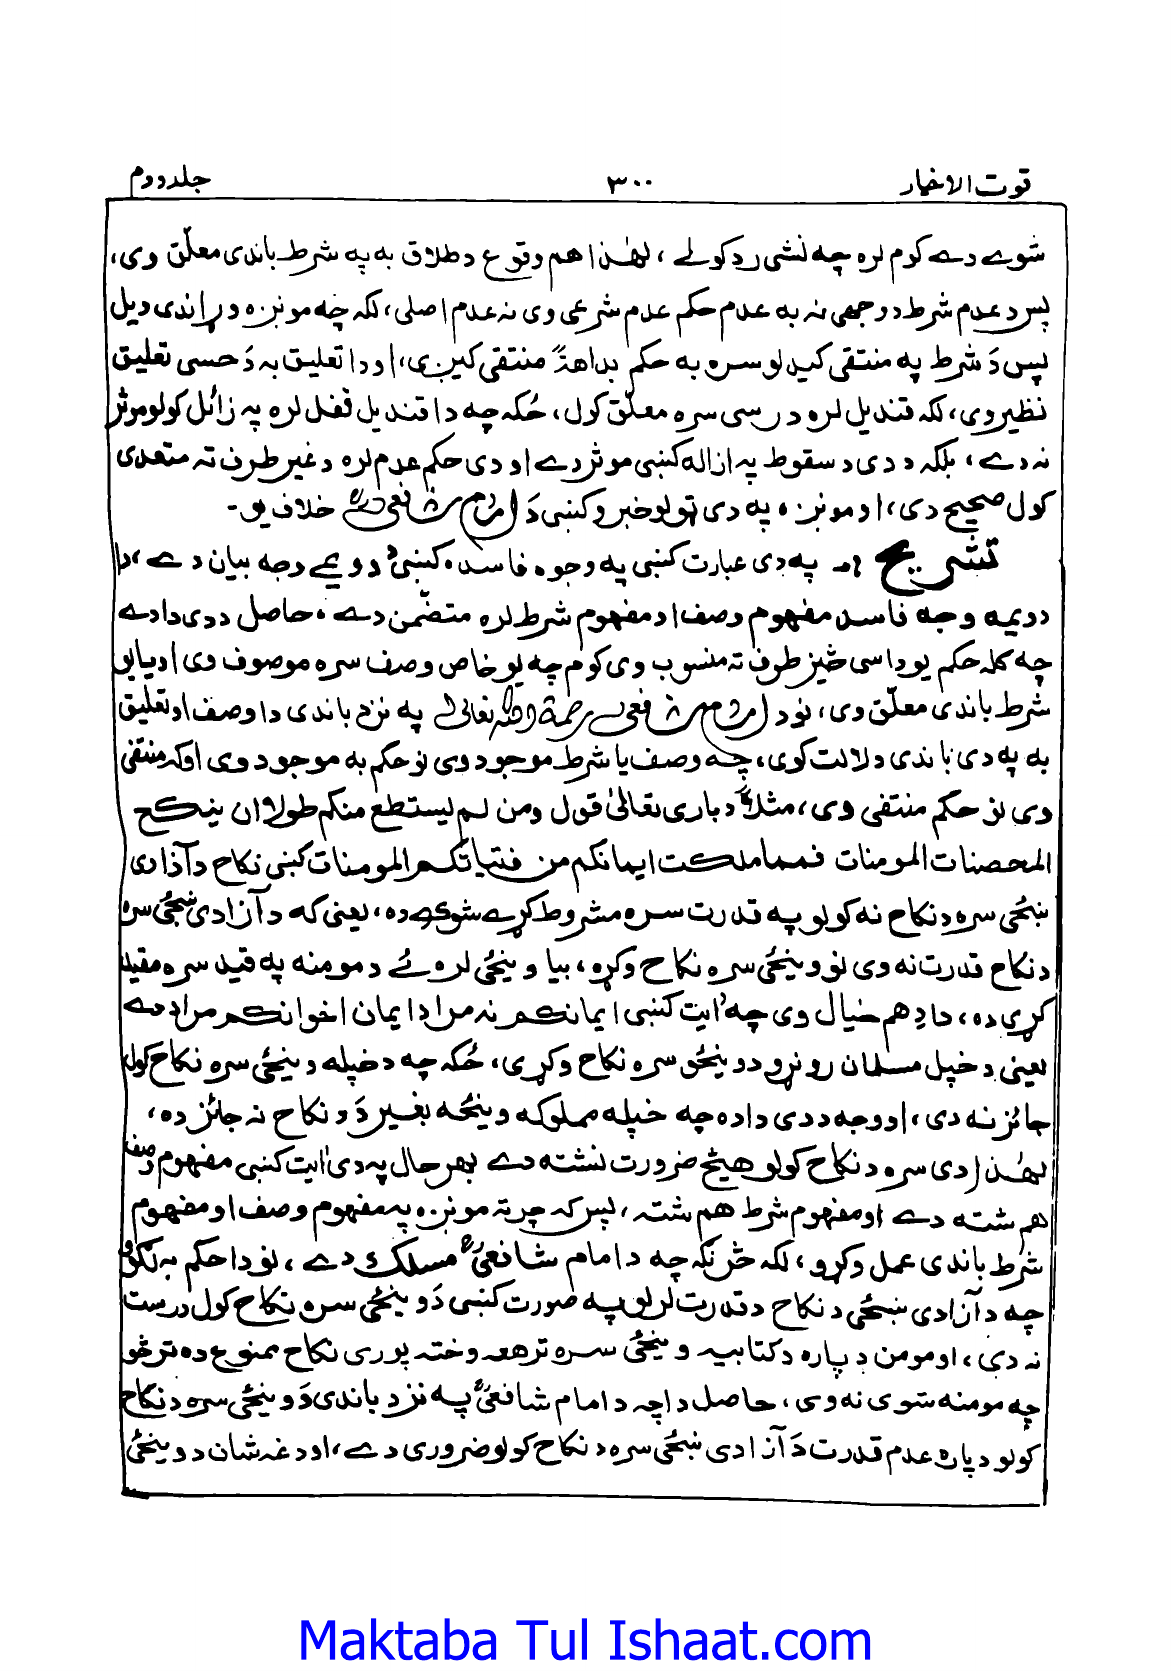 قوت الاخیار ۳۰۰ جلد دوم
شوے دے کوم لره چه نشی رد کولے ، لهٰذا هم وقوع د طلاق به په شرط باندی معلّق وی،
پس د عدم شرط د وجهی نه به عدم حکم عدم شرعی وی نه عدم اصلی، لکه چه مونږه وړاندی دیل
پس دَ شرط په منتقی کیدلو سره به حکم بداهةً منتقی کیږی، او دا تعلیق به دَ حسی تعلیق
نظیر وی، لکه قندیل لره د رسی سره معلّق کول، حُکه چه دا قندیل ثقل لره په زائل کولو موثر
نه دے، بلکه د دی د سقوط په ازاله کښی موثر دے او دی حکم عدم لره د غیر طرف ته متعدی
کول صحیح دی، او مونږه په دی ټولو خبرو کښی دَ امام شافعیؒ خلاف یو۔
تشریح :- په دی عبارت کښی په وجوه فاسده کښی د دویمے وجه بیان دے، دا
دریمه وجه فاسده مفهوم وصف او مفهوم شرط لره متضمن دے، حاصل د دی دا دے
چه کله حکم یو داسی څیز طرف ته منسوب وی کوم چه یو خاص وصف سره موصوف وی او یا په یو
شرط باندی معلّق وی، نو د امام شافعی رحمة الله تعالٰی په نزد باندی دا وصف او تعلیق
به په دی باندی دلالت کوی، چه وصف یا شرط موجود وی نو حکم به موجود وی او که منتقی
وی نو حکم منتفی وی، مثلاً د باری تعالیٰ قول ومن لم یستطع منکم طولا ان ینکح
المحصنات المومنات فمما ملکت ایمانکم من فتیاتکم المومنات کښی نکاح د آذادی
ښځی سره د نکاح نه کولو په قدرت سره مشروط کړے شوی ده، یعنی که د آزادی ښځی سره
د نکاح قدرت نه وی نو وینځی سره نکاح وکړه، بیا وینځی لره ئے د مومنه په قید سره مقید
کړی ده، دا دِ هم خیال وی چه آیت کښی ایمانکم نه مراد ایمان اخوانکم مراد دے
یعنی د خپل مسلمان رونړو د وینځو سره نکاح وکړی، حُکه چه د خپله وینځی سره نکاح کول
جائز نه دی، او وجه د دی دا ده چه خپله مملوکه وینځه بغیر دَ د نکاح نه جائز ده،
لهٰذا دی سره د نکاح کولو هیڅ ضرورت نشته دے بهرحال په دی آیت کښی مفهوم وصف
هم شته دے او مفهوم شرط هم شته، پس که چرته مونږه په مفهوم وصف او مفهوم
شرط باندی عمل وکړو، لکه څرنګه چه د امام شافعیؒ مسلک دے، نو دا حکم به لګوو
چه د آزادی ښځی د نکاح د قدرت لرلو په صورت کښی دَ وینځی سره نکاح کول درست
نه دی، او مومن د پاره د کتابیه وینځی سره تر هغه وخته پوری نکاح ممنوع ده تر څو
چه مومنه شوی نه وی، حاصل دا چه د امام شافعیؒ په نزد باندی دَ وینځی سره د نکاح
کولو د پاره عدم قدرت دَ آزادی ښځی سره د نکاح کولو ضروری دے، او دغه شان د وینځی
Maktaba Tul Ishaat.com